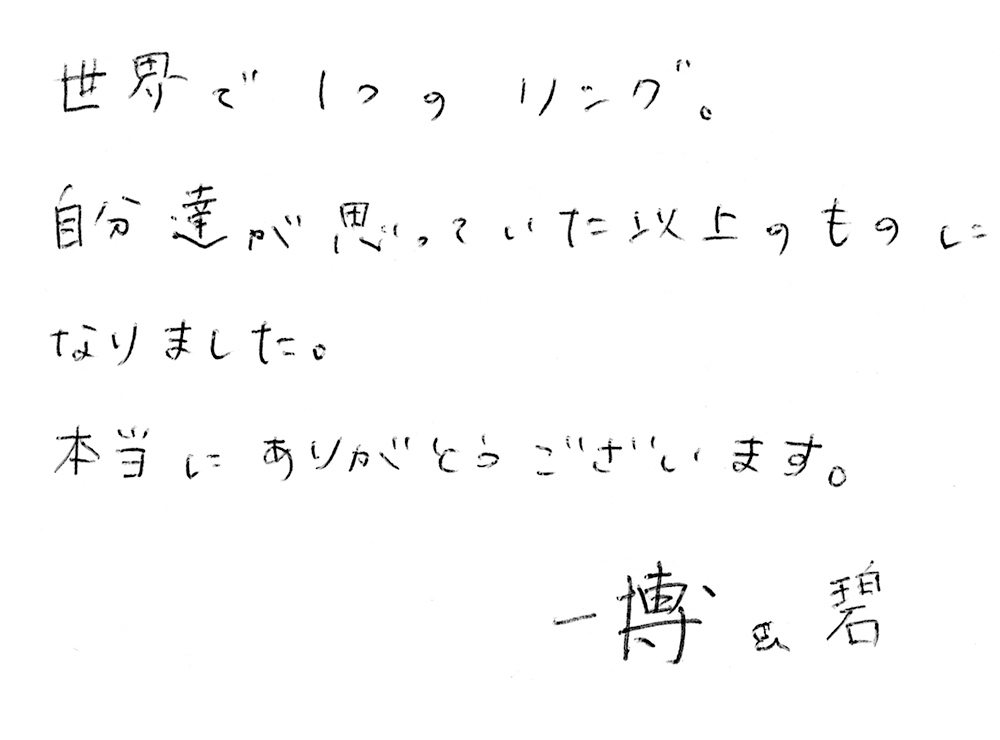 世界で1つのリング。
自分達が思っていた以上のものに
なりました。
本当にありがとうございます。
一博 & 碧